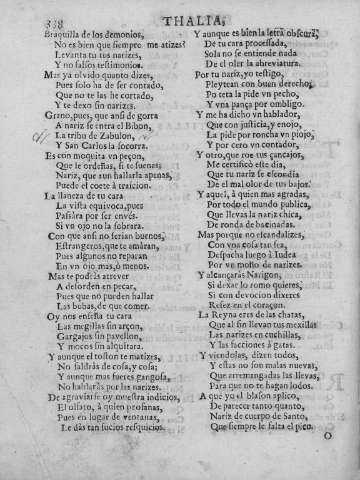 338
THALIA,
Braquilla de los demonios,
No es bien que siempre me atizes?
Levanta tu tus narizes,
Y no falsos testimonios.
Mas ya olvido quanto dizes,
Pues solo ha de ser cortado,
Que no te las he cortado,
Y te dexo sin narizes.
Grano, pues, que ansi de gorra
A nariz se entra el Bibon,
La tribu de Zabulon,
Y San Carlos la socorra.
Es con moquita un pepon,
Que le ordeñas, si te suenas;
Nariz, que aun hallarla apenas,
Puede el coete à traicion.
La llaneza de tu cara
La vista equivoca, pues
Passara por ser envés
Si un ojo no la sobrara.
Con que ansi no serian buenos,
Estrangeros, que te amàran,
Pues algunos no reparan
En un ojo mas, ò menos.
Mas te podràs atrever
A desorden en pecar,
Pues que no pueden hallar
Las bubas, de que comer.
Oy nos enseña tu cara
Las megillas sin arçon,
Gargajos sin pavellon,
Y mocos sin alquitara.
Y aunque el toston te matizes,
No saldràs de cosa, y cosa;
Y aunque mas fueres gangosa,
No hablaràs por las narizes.
De agraviarse oy muestra indicios,
El olfato, à quien profanas,
Pues en lugar de ventanas,
Le dàs tan sucios resquicios.
Y aunque es bien la letra obscura,
De tu cara processada,
Sola no se entiende nada
De el oler la abreviatura.
Por tu nariz, yo testigo,
Pleytean con buen derecho;
Po teta la pide un pecho,
Y una pança por ombligo.
Y me ha dicho un hablador,
Que con justicia, y enojo,
La pide por roncha un piojo,
Y por cero un contador.
Y otro, que roe tus çancajos,
Me certificò este dia,
Que tu nariz se escondia
De el mal olor de tus bajos.
Y aquel, à quien mas agradas,
Por todo el mundo publica,
Que llevas la nariz chica,
De ronda de bacinadas.
Mas porque no escandalizes,
Con una cosa tan fea,
Despacha luego à Iudea
Por un moño de narizes.
Y alcançaràs Narigon,
Si dexar lo romo quieres,
Si con devocion dixeres
Refez en el coraçon.
La Reyna eres de las chatas,
Que al fin llevan tus mexillas
Las narizes en cuchillas,
Y las facciones à gatas.
Y viendolas, dizen todos,
Y estas no son malas nuevas,
Que arremangadas las llevas,
Para que no te hagan lodos.
A què yo el blason aplico,
De parecer tanto quanto,
Nariz de cuerpo de Santo,
Que siempre le falta el pico.
O